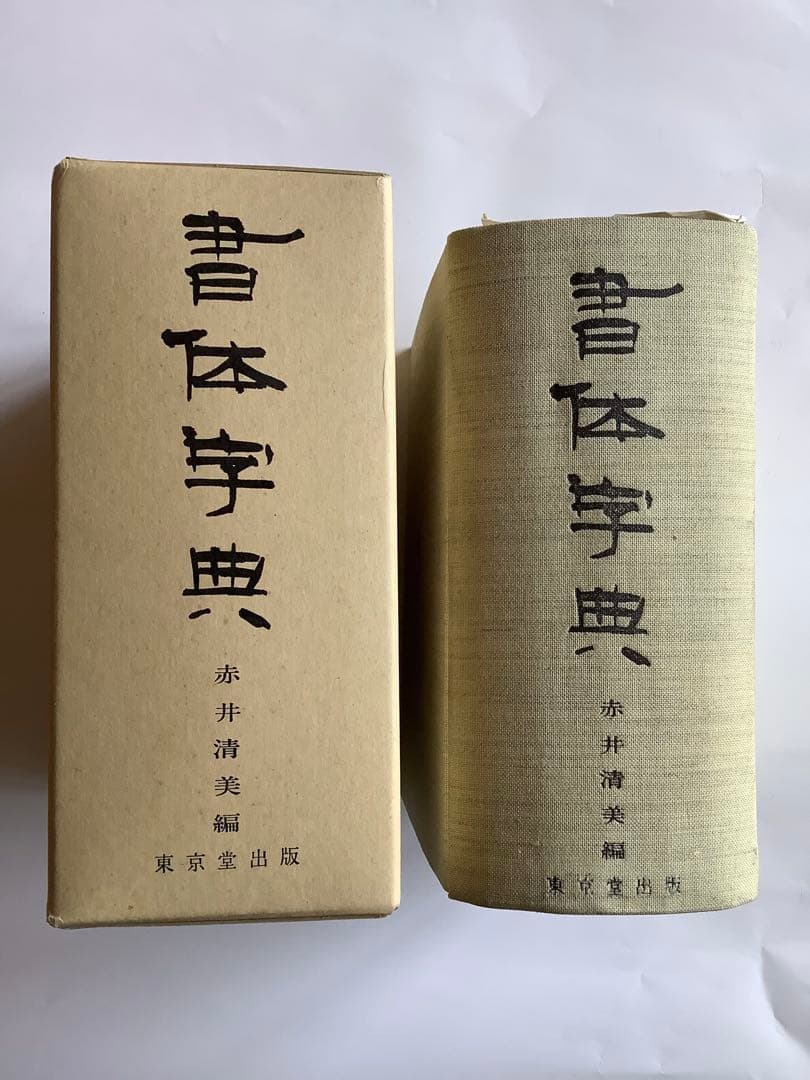 書体字典
赤井清美編
東京堂出版
書体字典
赤井清美編
東京堂出版